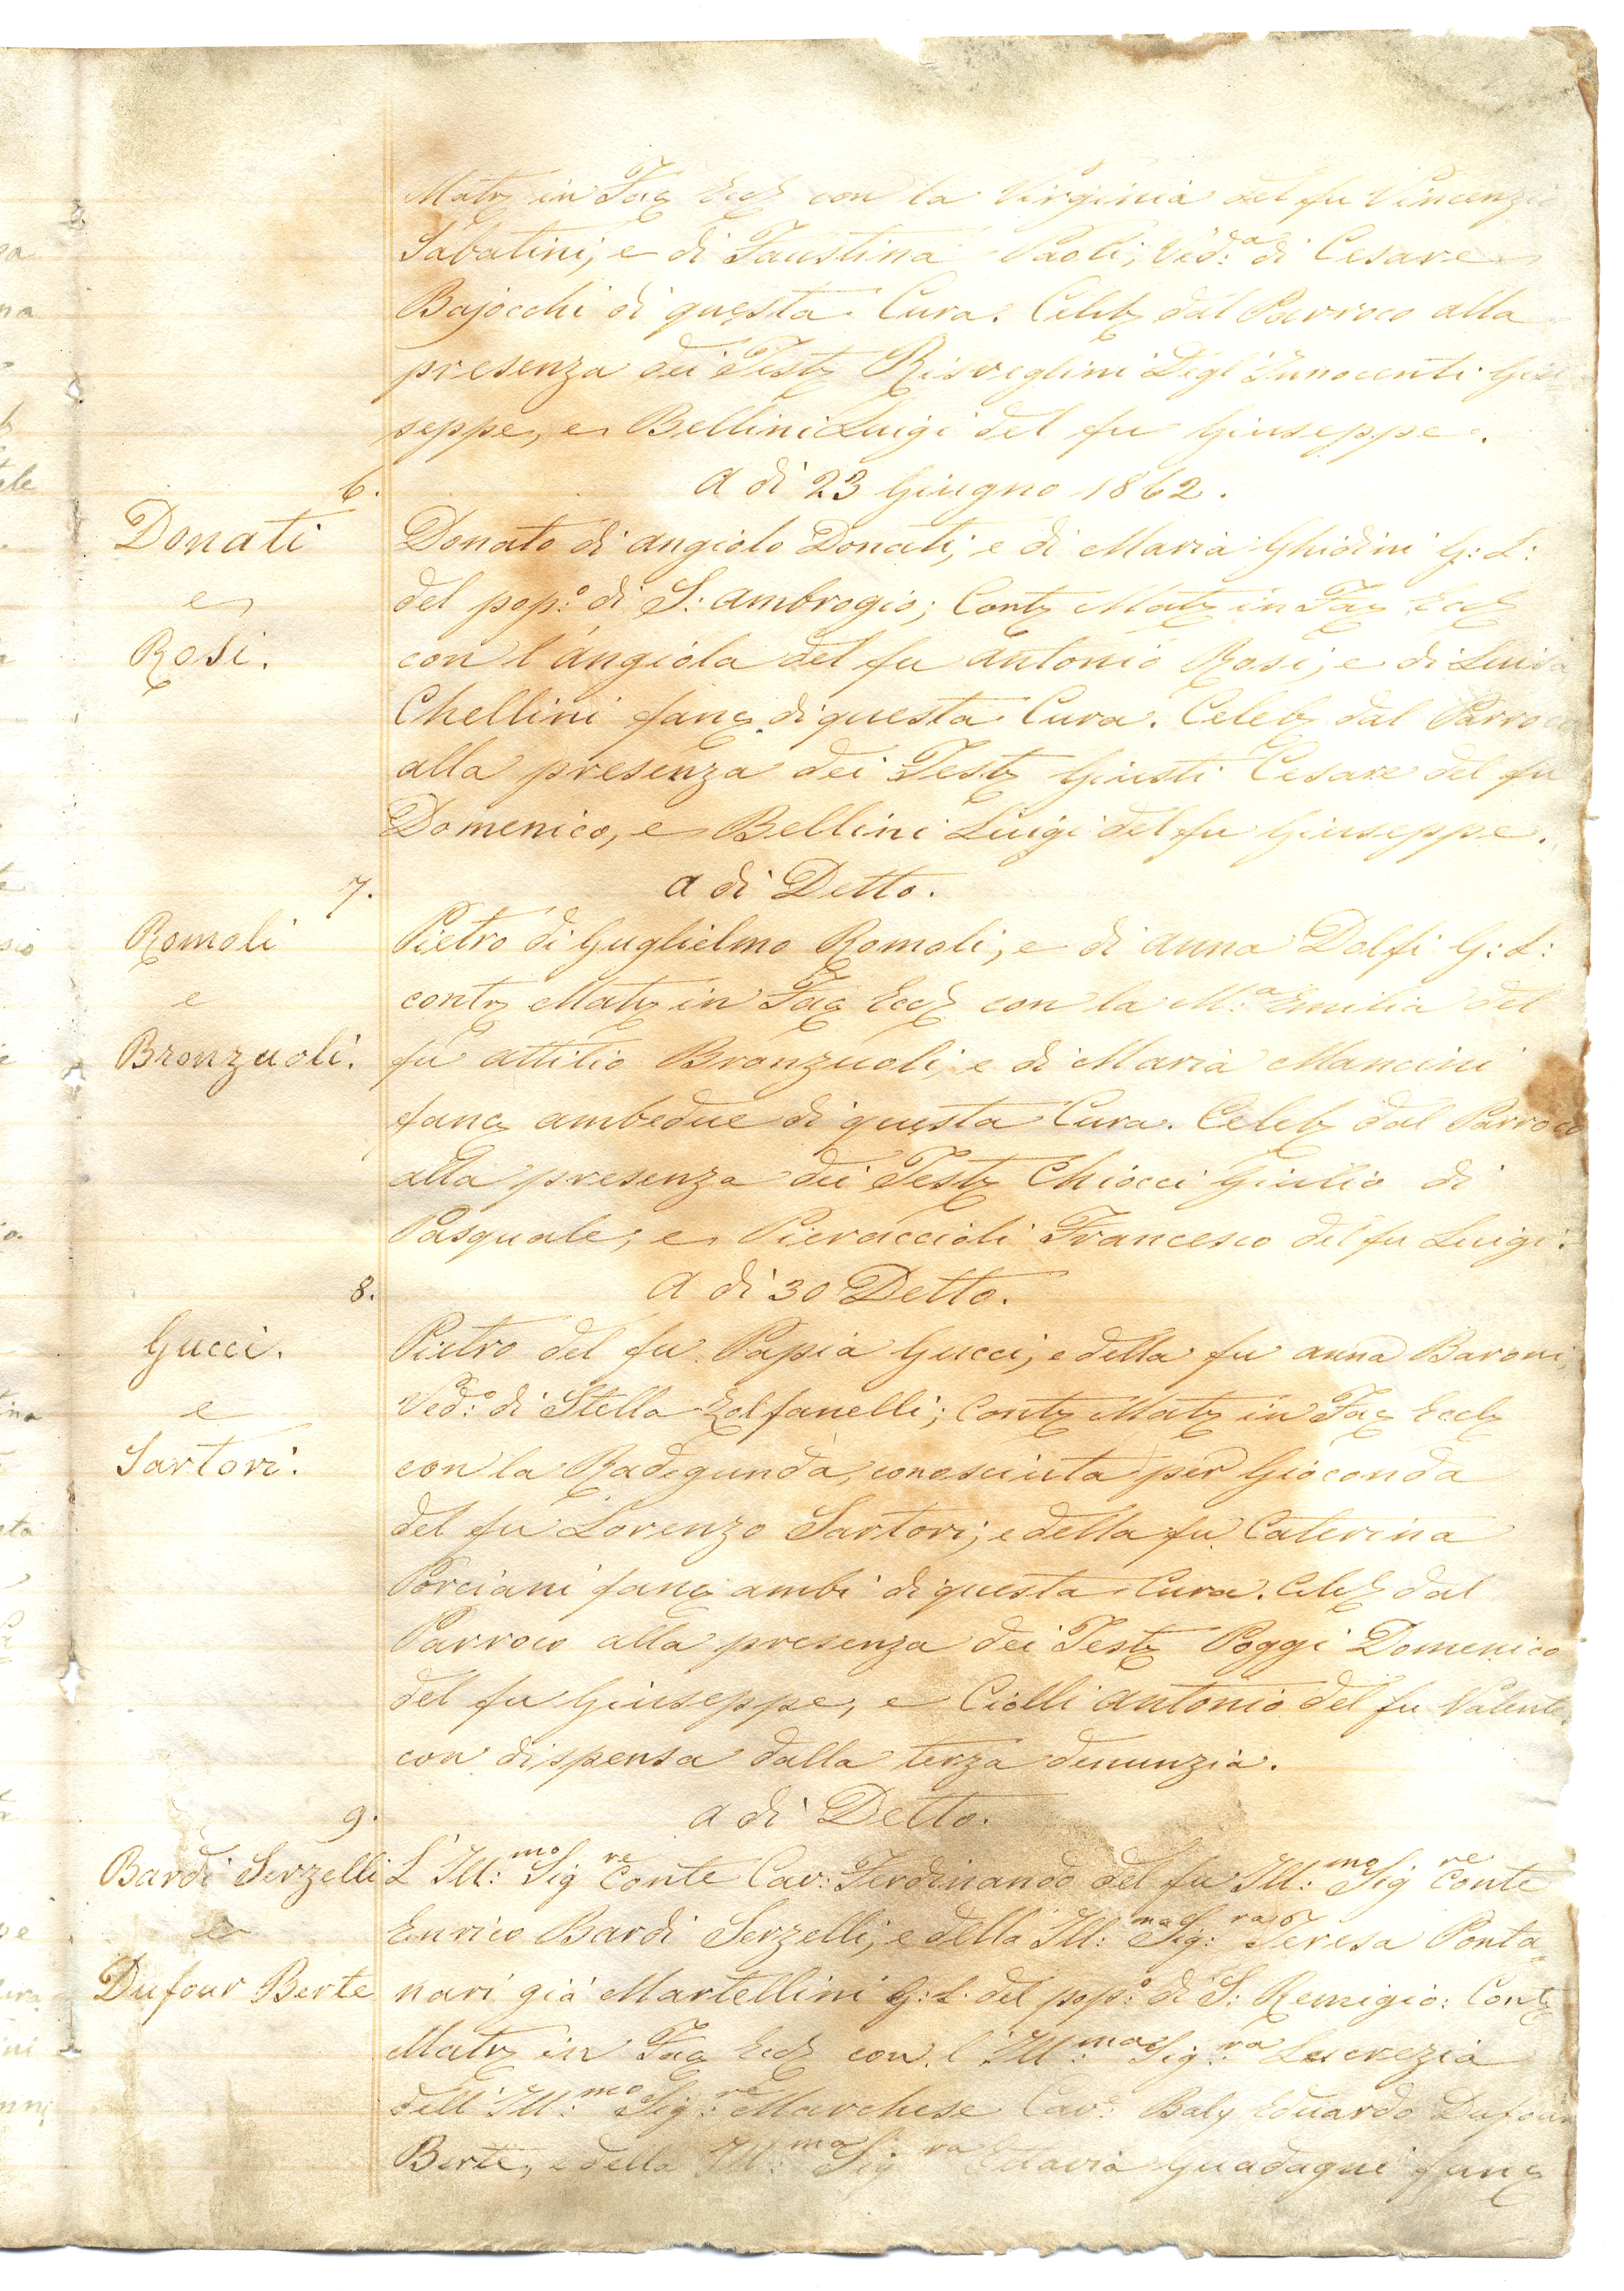 Matr in Fac Eccl con la Virginia del fu Vincenzio
Sabatini; e di Faustina Paoli; Ved:ª di Cesare
Bajocchi di questa Cura. Celeb dal Parroco alla
presenza dei Test Risveglini Degl'Innocenti Giu
seppe, e Bellini Luigi del fu Giuseppe.
6. A dì 23 Giugno 1862.
Donati
e
Rosi.
Donato di Angiolo Donati; e di Maria Ghidini G: L:
del pop:º di S: Ambrogio; Contr Matr in Fac Eccl
con l'Angiola del fu Antonio Rosi; e di Luisa
Chellini fanc di questa Cura. Celeb dal Parroco
alla presenza dei Test Giusti Cesare del fu
Domenico, e Bellini Luigi del fu Giuseppe.
7. A dì Detto.
Romoli
e
Bronzuoli.
Pietro di Guglielmo Romoli; e di Anna Dolfi G: L:
contr Matr in Fac Eccl con la M:ª Emilia del
fu Attilio Bronzuoli; e di Maria Mancini
fanc ambedue di questa Cura. Celeb dal Parroco
alla presenza dei Test Chiocci Giulio di
Pasquale; e Pieraccioli Francesco del fu Luigi.
8. A dì 30 Detto.
Gucci.
e
Sartori.
Pietro del fu Papia Gucci; e della fu Anna Baroni;
Ved:º di Stella Zolfanelli; Contr Matr in Fac Eccl
con la Radegunda, conosciuta per Gioconda
del fu Lorenzo Sartori; e della fu Caterina
Porciani fanc ambi di questa Cura. Celeb dal
Parroco alla presenza dei Test Poggi Domenico
del fu Giuseppe, e Ciolli Antonio del fu Valente,
con dispensa dalla terza denunzia.
9. A dì Detto.
Bardi Serzelli
e
Dufour Berte
L'Ill:mo Sig re Conte Cav: Ferdinando del fu Ill:mo Sig re Conte
Enrico Bardi Serzelli; e della Ill:ma Sig:ra Teresa Ponta
nari già Martellini G: L: del pop:º di S: Remigio: Contr
Matr in Fac Eccl con l'Ill:ma Sig:ra Lucrezia
dell'Ill:mo Sig:re Marchese Cav: Baly Eduardo Dufour
Berte, e della Ill:ma Sig ra Ottavia Guadagni fanc